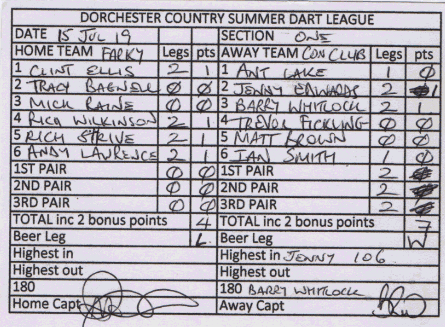 DORCHESTER COUNTRY SUMMER DART LEAGUE
DATE 15 JUL 19 SECTION ONE
HOME TEAM FARKY Legs pts AWAY TEAM CON CLUB Legs pts
1 CLINT ELLIS 2 1 1 ANT LAKE 1 0
2 TRACY BAGNELL 0 0 2 JENNY EDWARDS 2 1
3 MICK RAINE 0 0 3 BARRY WHITLOCK 2 1
4 RICH WILKINSON 2 1 4 TREVOR FICKLING 0 0
5 RICH STRIVE 2 1 5 MATT BROWN 0 0
6 ANDY LAWRENCE 2 1 6 IAN SMITH 1 0
1ST PAIR 0 0 1ST PAIR 2
2ND PAIR 0 0 2ND PAIR 2
3RD PAIR 0 0 3RD PAIR 2
TOTAL inc 2 bonus points 4 TOTAL inc 2 bonus points 7
Beer Leg L Beer Leg W
Highest in Highest in JENNY 106
Highest out Highest out
180 180 BARRY WHITLOCK
Home Capt Away Capt